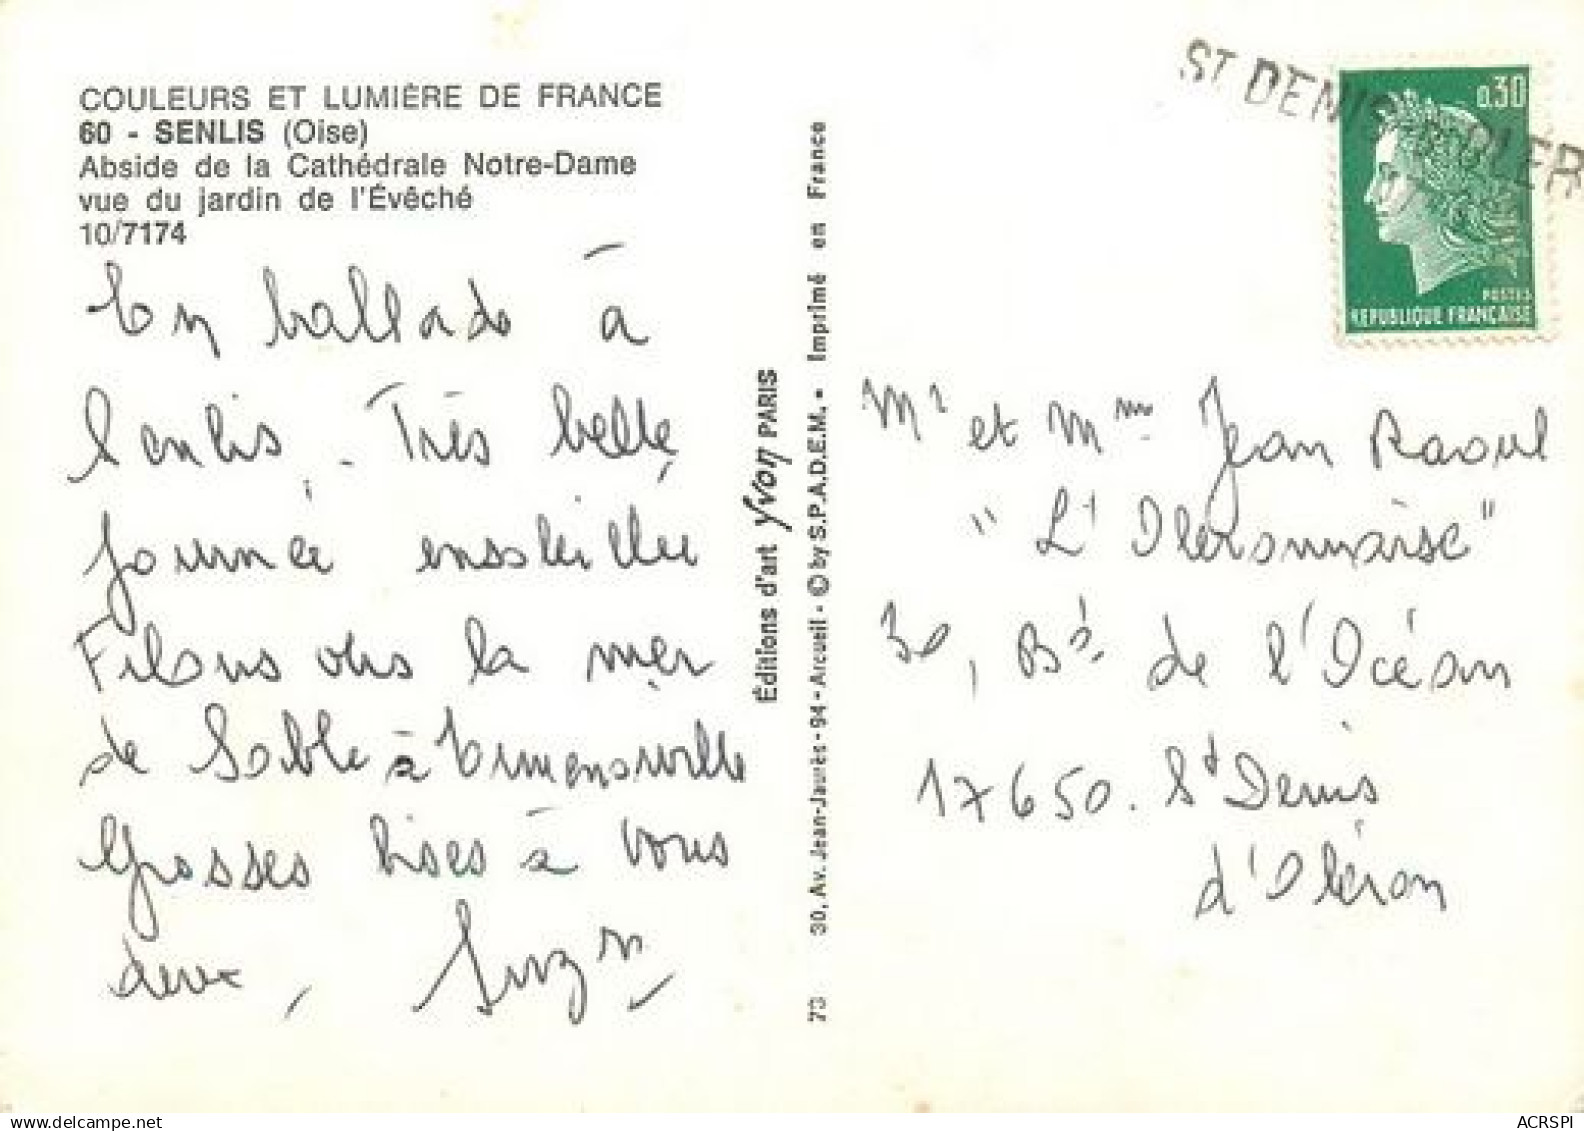 COULEURS ET LUMIÈRE DE FRANCE
60 - SENLIS (Oise)
Abside de la Cathédrale Notre-Dame
vue du jardin de l'Évêché
10/7174
En ballade à
Senlis. Très belle
journée ensoleillée
Filons vers la mer
de Sable à Ermenonville
Grosses bises à vous
deux,
Éditions d'art Yvon PARIS
30, Av. Jean-Jaurès - 94 - Arcueil - © by S.P.A.D.E.M. • Imprimé en France
73
ST DENIS
0,30
POSTES
REPUBLIQUE FRANÇAISE
Mr et Mme Jean Raoul
"L'Oleronnaise"
30, Bd de l'Océan
17650. St Denis
d'Oléron
ACRSPI